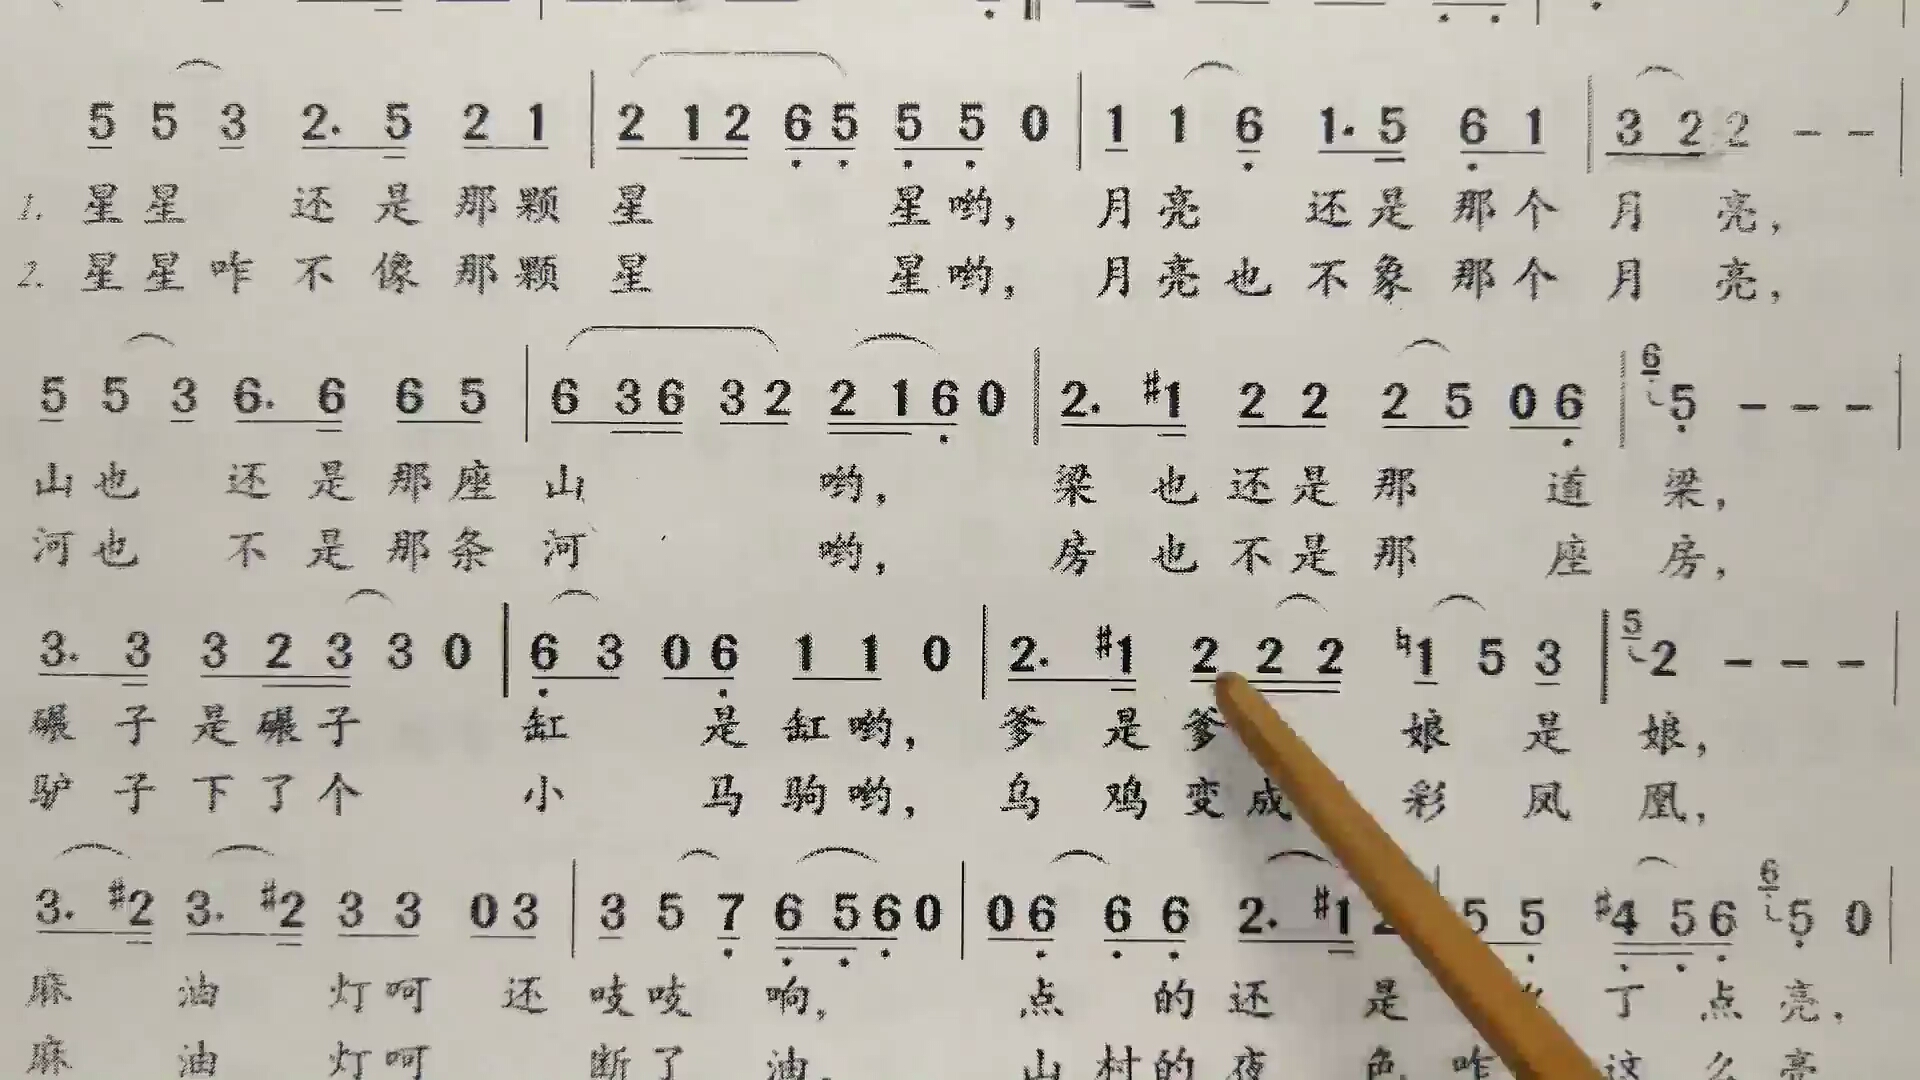 5 5 3 2. 5 2 1 | 2 1 2 6 5 5 5 0 | 1 1 6 1. 5 6 1 | 3 2 2 - - |
1. 星星 还是那颗星 星哟，月亮 还是那个月 亮，
2. 星星咋不像那颗星 星哟，月亮也不象那个月 亮，
5 5 3 6. 6 6 5 | 6 3 6 3 2 2 1 6 0 | 2. #1 2 2 2 5 0 6 | 6 5 - - - |
山也 还是那座山 哟，梁也还是那 道梁，
河也 不是那条河 哟，房也不是那 座房，
3. 3 3 2 3 3 0 | 6 3 0 6 1 1 0 | 2. #1 2 2 2 ♮1 5 3 | 5 2 - - - |
碾子是碾子 缸 是缸哟，爹是爹 娘是娘，
驴子下了个 小 马驹哟，乌鸡变成 彩凤凰，
3. #2 3. #2 3 3 0 3 | 3 5 7 6 5 6 0 | 0 6 6 6 2. #1 5 5 #4 5 6 6 5 0 |
麻 油 灯呵 还吱吱 响，点 的还 是 了点亮，
麻 油 灯呵 断了 油，山村的夜 色咋 这么亮